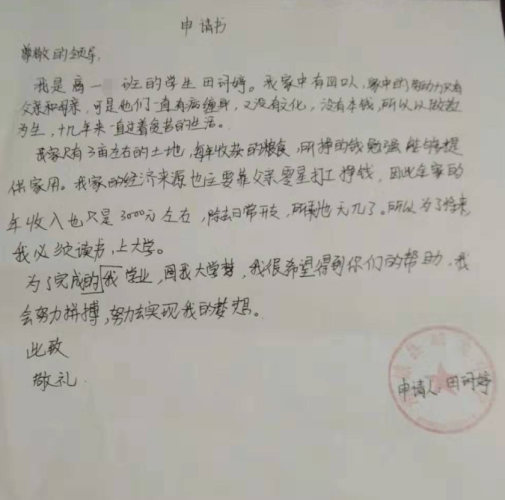 申请书
尊敬的领导:
我是高一 班的学生田诃婷。我家中有四口人,家中的劳动力只有
父亲和母亲,可是他们一直有病缠身,又没有文化,没有本钱,所以以做农
为生,十几年来一直过着贫苦的生活。
我家只有3亩左右的土地,每年收获的粮食,所挣的钱勉强能够提
供家用。我家的经济来源也主要靠父亲零星打工挣钱,因此全家的
年收入也只是3000元左右,除去日常开支,所剩也无几了。所以为了将来,
我必须读书,上大学。
为了完成的我学业,圆我大学梦,我很希望得到你们的帮助,我
会努力拼搏,努力去实现我的梦想。
此致
敬礼
申请人:田诃婷